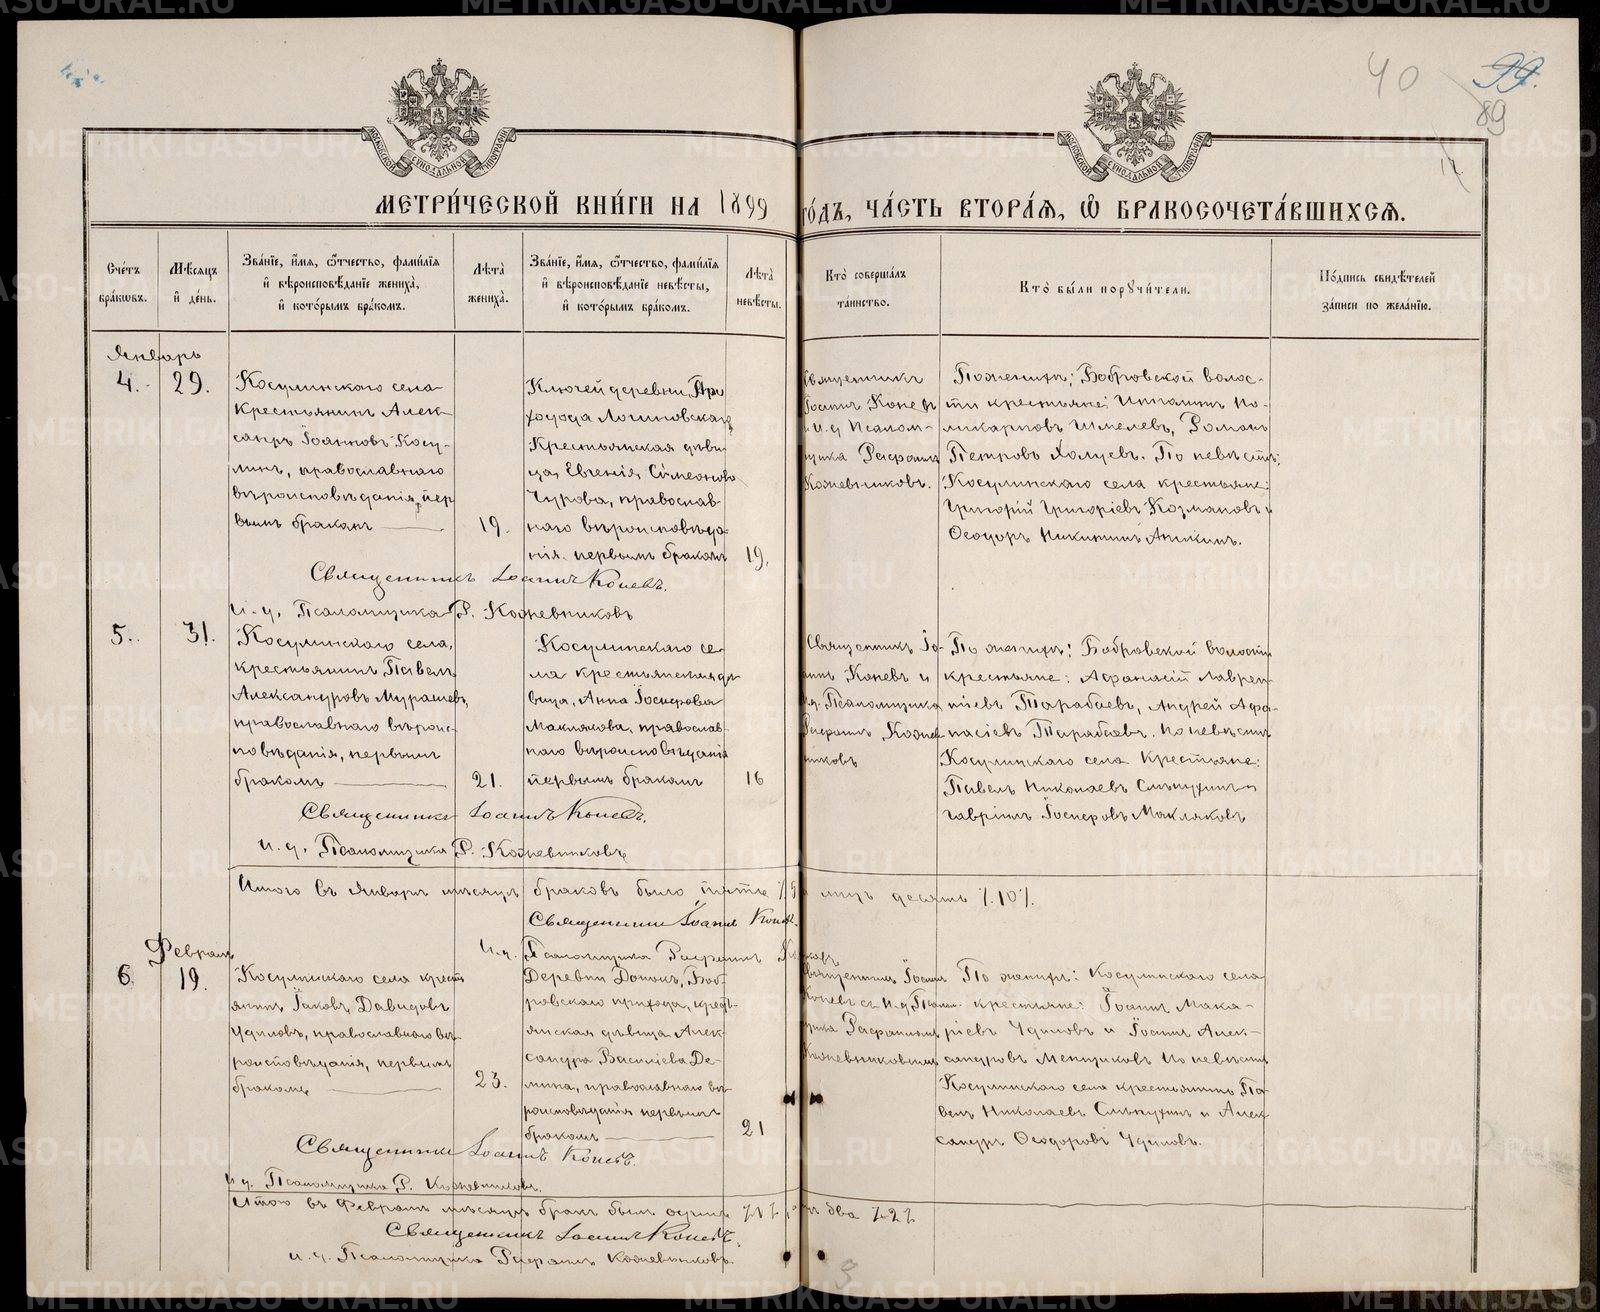 40
99.
89
МЕТРИ́ЧЕСКОЙ КНИ́ГИ НА 1899 ГО́ДЪ, ЧА́СТЬ ВТОРА́Я, Ѡ҆ БРАКОСОЧЕТА́ВШИХСЯ.
Сче́тъ бра́ковъ.
Мѣ́сяцъ и҆ де́нь.
Зва́нїе, и҆́мя, ѻ҆́тчество, фами́лїя и҆ вѣроисповѣ́данїе жениха̀, и҆ кото́рымъ бра́комъ.
Лѣта̀ жениха̀.
Зва́нїе, и҆́мя, ѻ҆́тчество, фами́лїя и҆ вѣроисповѣ́данїе невѣ́сты, и҆ кото́рымъ бра́комъ.
Лѣта̀ невѣ́сты.
Кто̀ соверша́лъ та́инство.
Кто̀ бы́ли порꙋчи́тели.
По́дпись свидѣ́телей за́писи по жела́нїю.
Январь
4.
29.
Косулинскаго села
Крестьянинъ Алек-
сандръ Іоанновъ Косу-
линъ, православнаго
вѣроисповѣданія, пер
вымъ бракомъ
19.
Ключей деревни, При
хода Логиновскаго
Крестьянская дѣви-
ца, Евгенія Симеонова
Чурова, православ-
наго вѣроисповѣда-
нія. первымъ бракомъ
19.
Священникъ
Іоаннъ Коневъ
и. д Псалом-
щика Рафаилъ
Кожевниковъ.
По женихѣ; Бобровской волос-
ти крестьяне: Ипполитъ По-
ликарповъ Шмелевъ, Романъ
Петровъ Холуевъ. По невѣстѣ;
Косулинскаго села крестьяне:
Григорій Григоріевъ Козмановъ и
Ѳеодоръ Никитинъ Аникинъ.
Священникъ Іоаннъ Коневъ.
И. д. Псаломщика Р. Кожевниковъ
5.
31.
Косулинскаго села,
крестьянинъ Павелъ
Александровъ Мурашевъ,
православнаго вѣроис-
повѣданія, первымъ
бракомъ
21.
Косулинскаго се-
ла крестьянская дѣ-
вица, Анна Іосифова
Маклакова, православ-
наго вѣроисповѣданія
первымъ бракомъ
16
Священникъ Іо-
аннъ Коневъ и
и.д. Псаломщика
Рафаилъ Кожев-
никовъ
По женихѣ: Бобровской волости
крестьяне: Аѳанасій Лаврен-
тіевъ Тарабаевъ, Андрей Аѳа-
насіевъ Тарабаевъ. по невѣстѣ
Косулинскаго села Крестьяне:
Павелъ Николаевъ Слѣпухинъ и
Гавріилъ Іосифовъ Маклаковъ
Священникъ Іоаннъ Коневъ.
и. д. Псаломщика Р. Кожевниковъ
Итого въ Январѣ мѣсяцѣ браковъ было пять /.5 лицъ десять /.10/.
Священникъ Іоаннъ Коневъ.
И.д. Псаломщика Рафаилъ
Февраль
6
19.
Косулинскаго села крест
янинъ Іаковъ Давидовъ
Удиловъ, православнаго вѣ-
роисповѣданія, первымъ
бракомъ
23.
Деревни Донокъ, Боб-
ровскаго прихода, крест-
янская дѣвица Алек-
сандра Василіева Де-
мина, православнаго вѣ-
роисповѣданія первымъ
бракомъ
21
Священникъ Іоаннъ
Коневъ съ И.д Псалом-
щика Рафаиломъ
Кожевниковымъ
По женихѣ: Косулинскаго села
крестьяне: Іоаннъ Мака-
ріевъ Удиловъ и Іоаннъ Алек-
сандровъ Менщиковъ по невѣстѣ
Косулинскаго села крестьянинъ Па
велъ Николаевъ Слѣпухинъ и Алек
сандръ Ѳеодоровъ Удиловъ.
Священникъ Іоаннъ Коневъ.
И д. Псаломщика Р. Кожевниковъ.
Итого въ Февралѣ мѣсяцѣ бракъ былъ одинъ /.1/. лицъ два /.2/.
Священникъ Іоаннъ Коневъ.
и. д. Псаломщика Рафаилъ Кожевниковъ.
METRIKI.GASO-URAL.RU